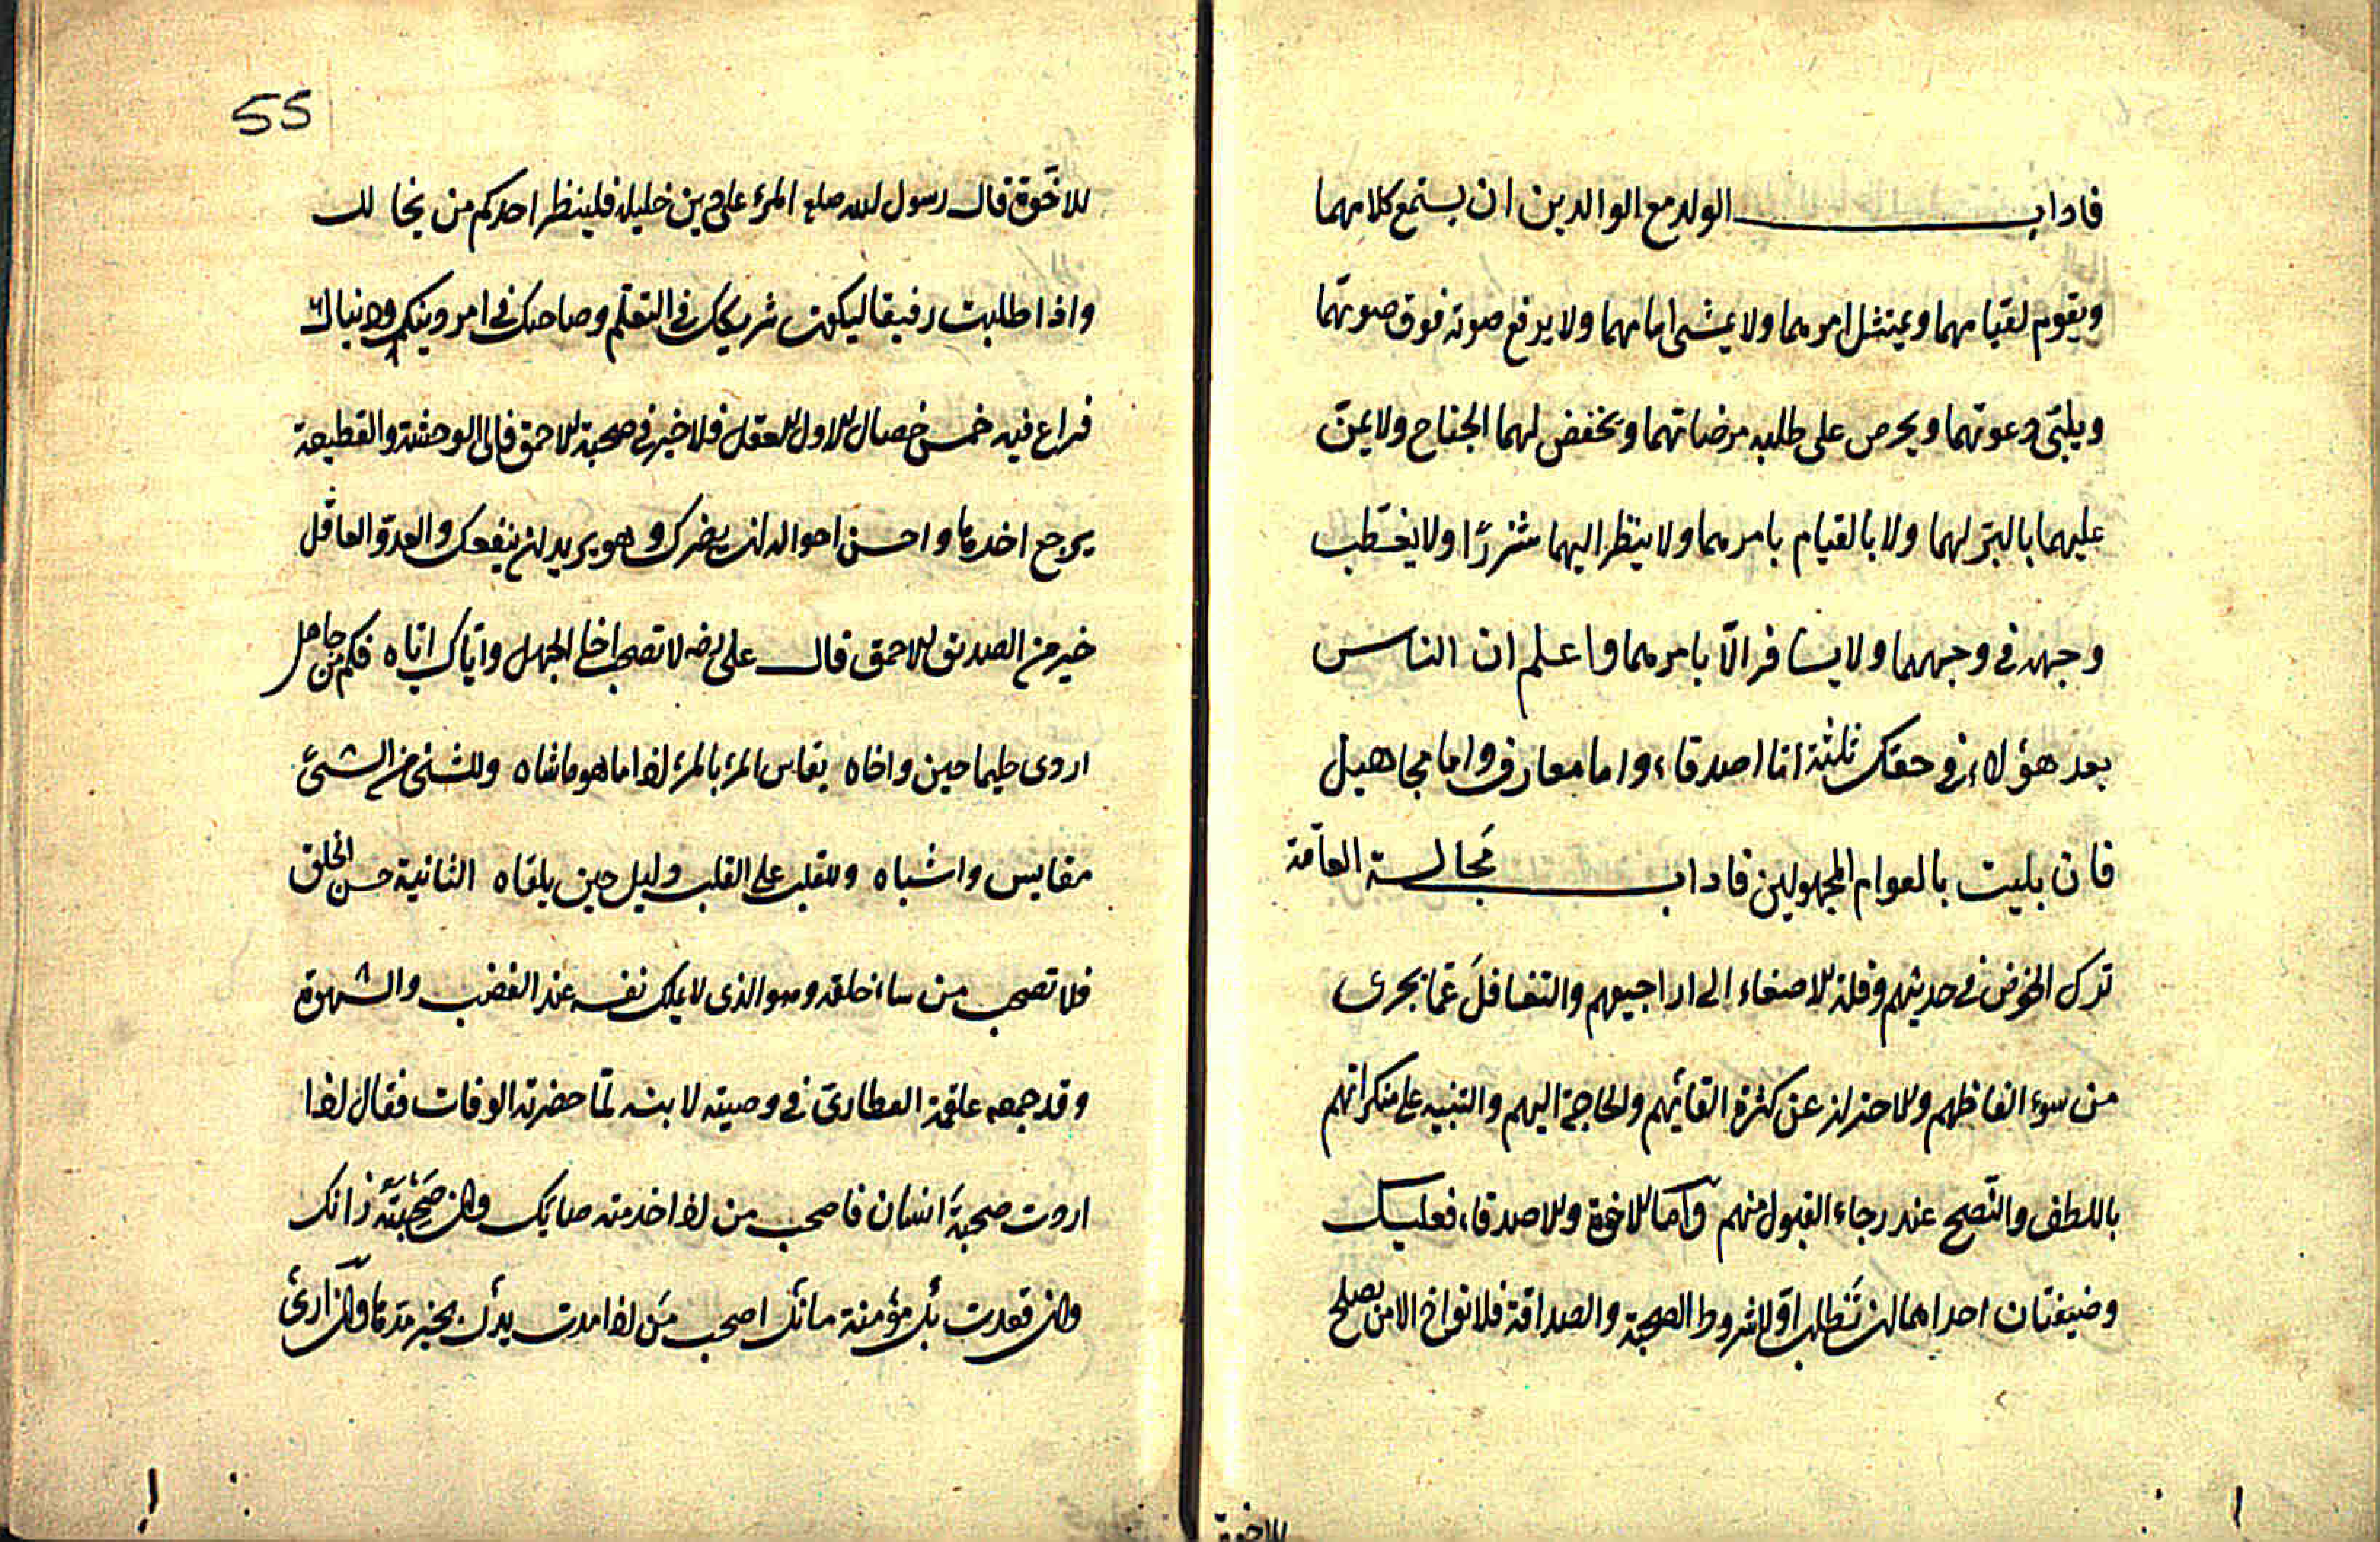 فاداب الولد مع الوالدين ان يستمع كلامهما
ويقوم لقيامهما ويمتثل امرهما ولا يمشى امامهما ولا يرفع صوته فوق صوتهما
ويلبّى دعوتهما ويحرص على طلب مرضاتهما ويخفض لهما الجناح ولا يمنّ
عليهما بالبرّ لهما ولا بالقيام بامرهما ولا ينظر اليهما شزرًا ولا يقطّب
وجهه فى وجههما ولا يسافر الّا بامرهما واعلم ان الناس
بعد هؤلاء فى حقك ثلثة امّا اصدقاء واما معارف واما مجاهيل
فان بليت بالعوام المجهولين فاداب مَجالسة العامّة
ترك الخوض فى حديثهم وقلة الاصغاء الى اراجيفهم والتغافلَ عمّا يجرى
من سوء الفاظهم والاحتراز عن كثرة القائهم والحاجة اليهم والتنبيه على منكراتهم
باللطف والنّصح عند رجاء القبول منهم وامّا الاخوة والاصدقاء فعليك
وضيفتان احداهما ان تَطلب اوّلا شروط الصحبة والصداقة فلا تواخ الا من يصلح
للاخوة
55
للاخوّة قال رسول الله صلعم المرء على دين خليله فلينظر احدكم من يخالل
واذا طلبت رفيقا ليكون شريكك فى التعلّم وصاحبك فى امر دينكم ودنياك
فراع فيه خمس خصال الاول العقل فلا خير فى صحبة الاحمق فالى الوحشة والقطيعة
يرجع اخرها واحسن احواله ان يضرك وهو يريد ان ينفعك والعدوّ العاقل
خير من الصديق الاحمق قال على رضه لا تصحب اخا الجهل واياك اياه فكم من جاهل
اردى حليما حين واخاه يقاس المرء بالمرء اذا ما هو ماشاه وللشئ من الشئ
مقاييس واشباه وللقلب على القلب دليل حين يلقاه الثانية حسن الخلق
فلا تصحب من ساء خلقه وهو الذى لا يملك نفسه عند الغضب والشهوة
وقد جمعه علقمة العطاردىّ فى وصيته لابنه لمّا حضرته الوفات فقال اذا
اردت صحبةَ انسان فاصحب من اذا خدمته صانك وان صَحِبْتَه زانك
وان قعدت بك مؤمنة مانك اصحب مَن اذا مددت يدك بخير مدّها وان ارى